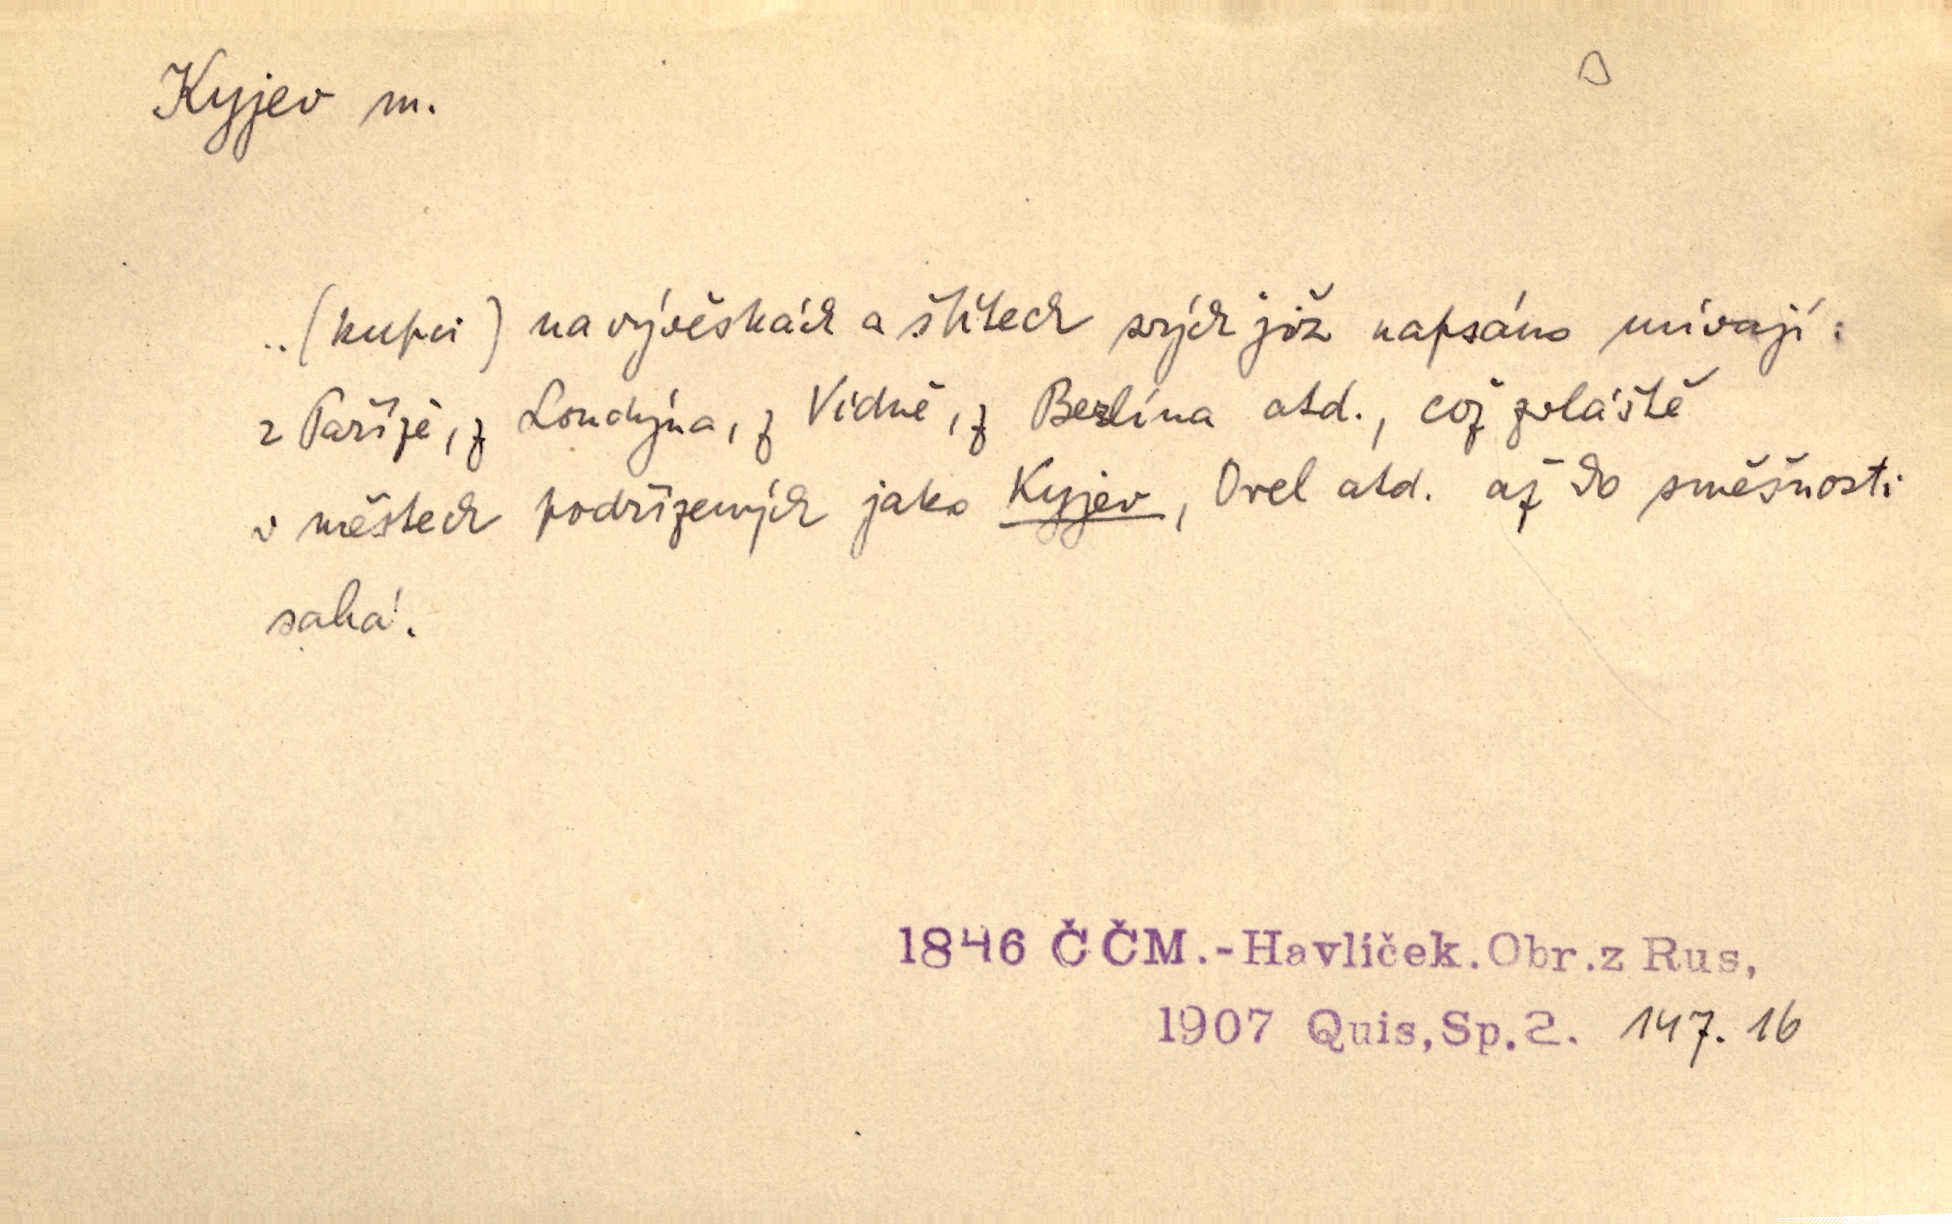 Kyjev m.
..(kupci) na vývěskách a štítech svých již napsáno mívají:
z Paříže, z Londýna, z Vídně, z Berlína atd., což zvláště
v městech podřízených jako Kyjev, Orel atd. až do směšnosti
sahá.
1846 ČČM.-Havlíček.Obr.z Rus,
1907 Quis,Sp.2. 147. 16